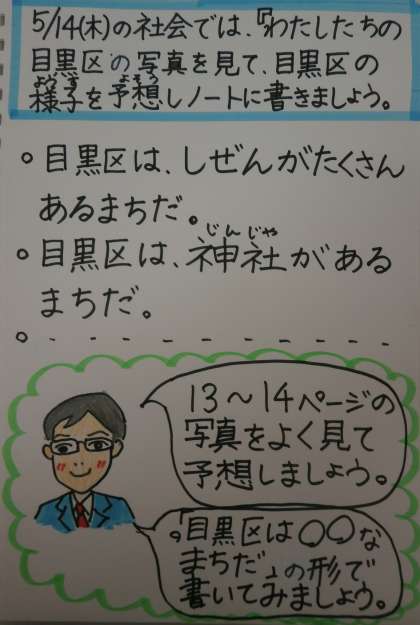 5/14(木)の社会では、『わたしたちの
目黒区の写真を見て、目黒区の
ようす よそう
様子を予想しノートに書きましょう。
。目黒区は、しぜんがたくさん
あるまちだ。
じんじゃ
。目黒区は、神社がある
まちだ。
。- - - - - - - - - - -
13〜14ページの
写真をよく見て
予想しましょう。
『目黒区は〇〇な
まちだ』の形で
書いてみましょう。